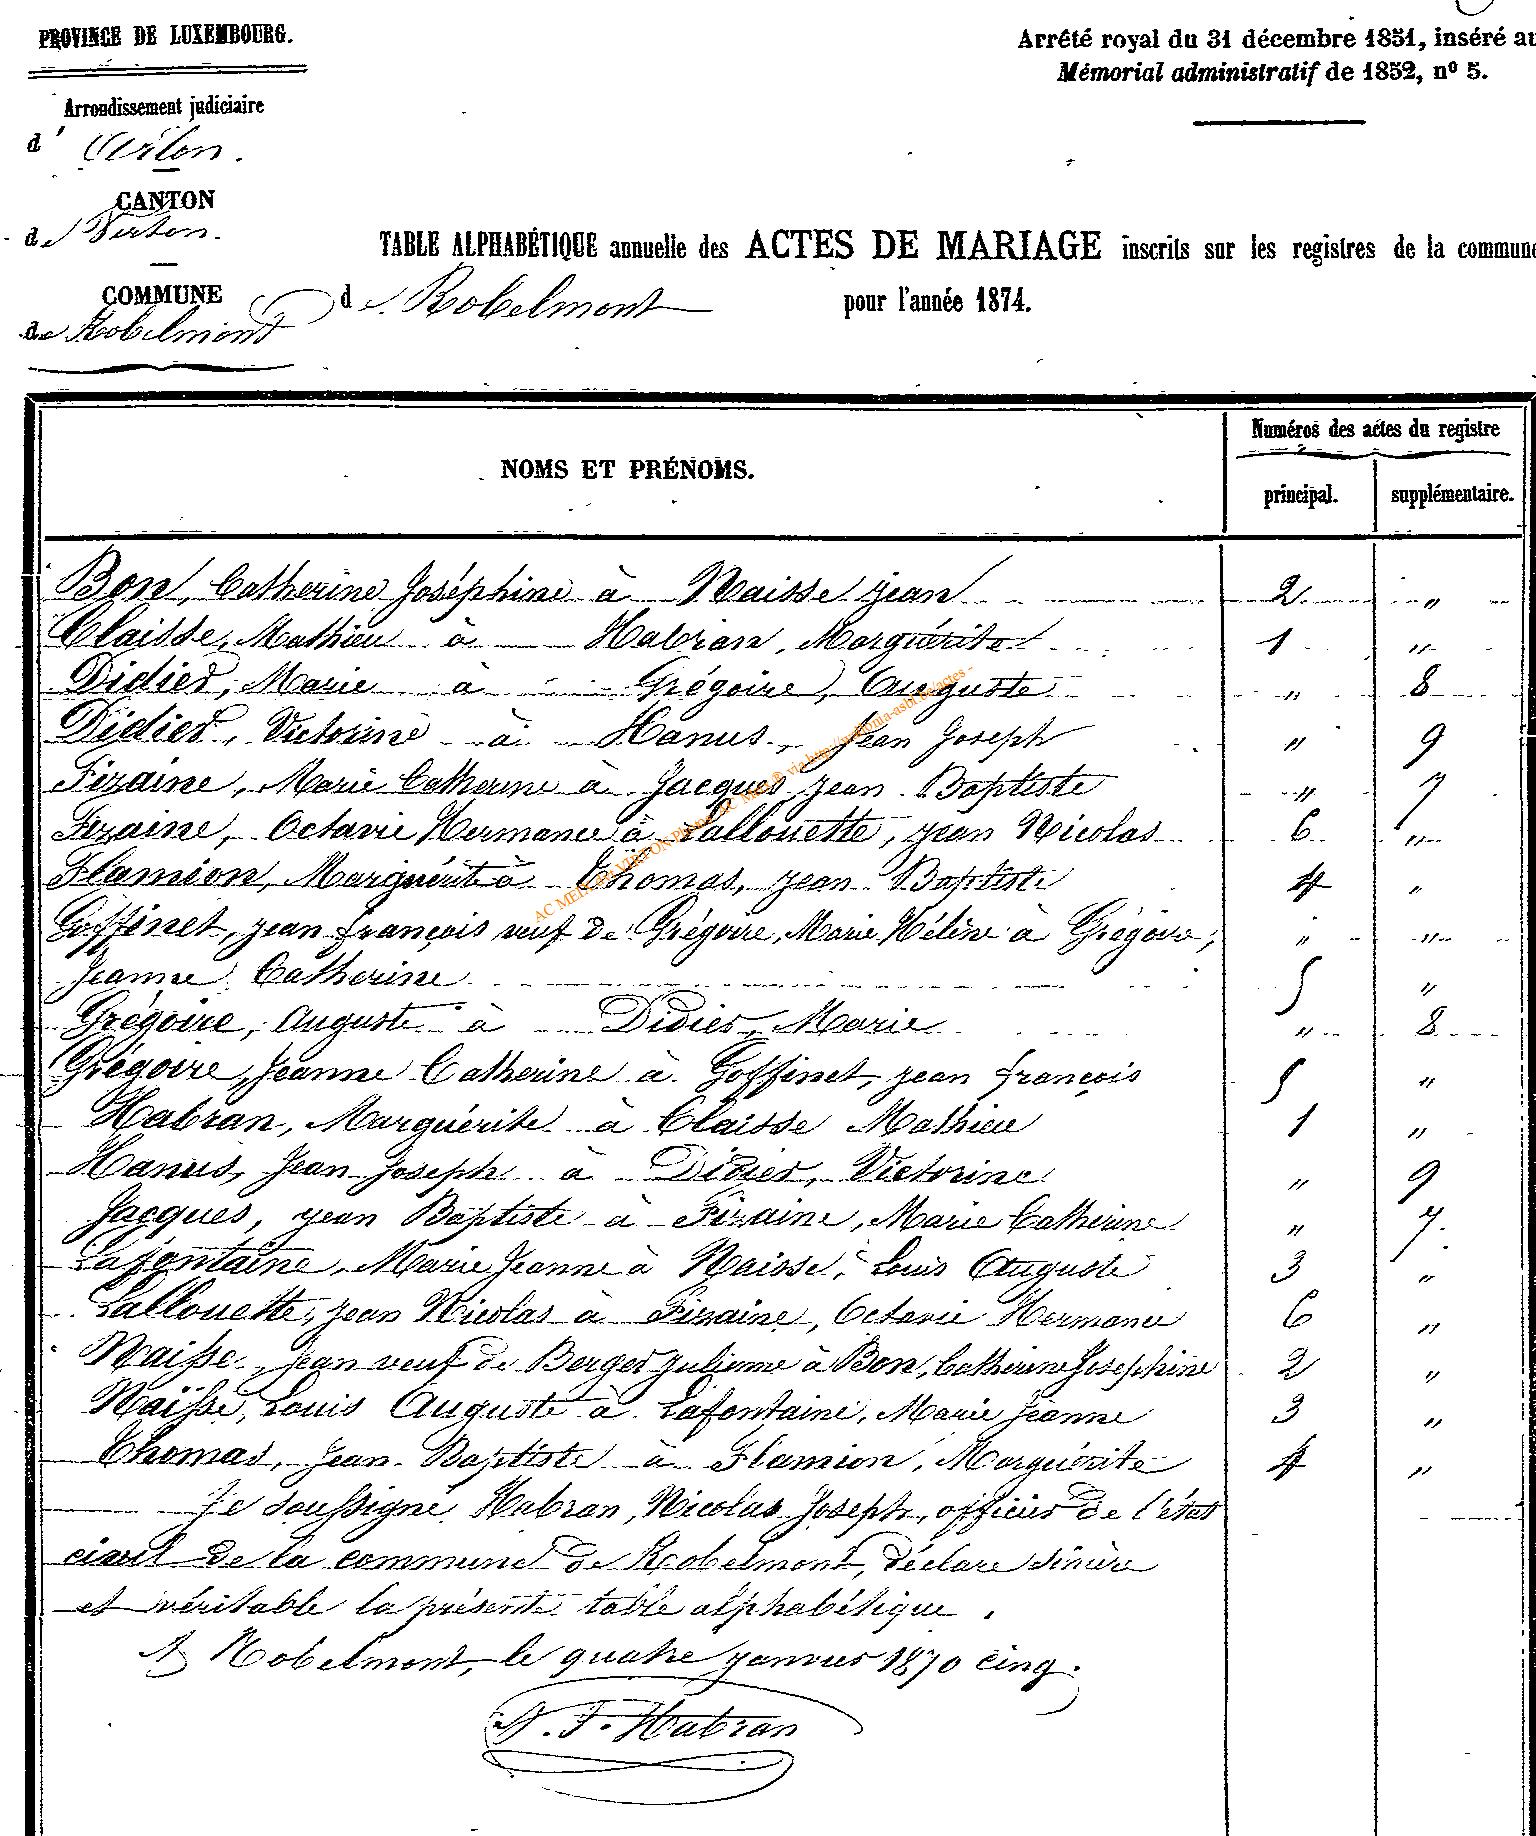 PROVINCE DE LUXEMBOURG.
Arrêté royal du 31 décembre 1851, inséré au
Mémorial administratif de 1852, nº 5.
Arrondissement judiciaire
d' Arlon.
CANTON
de Virton.
COMMUNE
de Robelmont
TABLE ALPHABÉTIQUE annuelle des ACTES DE MARIAGE inscrits sur les registres de la commune
de Robelmont pour l'année 1874.
Numéros des actes du registre
NOMS ET PRÉNOMS.
principal. supplémentaire.
Bon, Catherine Joséphine à Naisse jean 2 "
Claisse, Mathieu à Habran, Marguérite 1 "
Didier, Marie à Grégoire, Auguste " 8
Didier, Victorine à Hanus, Jean Joseph " 9
Fizaine, Marie Catherine à Jacques jean Baptiste " 7
Fizaine, Octavie Hermance à Lallouette, jean Nicolas 6 "
Flamion, Marguérite à Thomas, jean Baptiste 4 "
Goffinet, jean françois veuf de Grégoire, Marie Hélène à Grégoire, " "
Jeanne Catherine 5 "
Grégoire, Auguste à Didier, Marie " 8
Grégoire, Jeanne Catherine à Goffinet, jean françois 5 "
Habran, Marguérite à Claisse Mathieu 1 "
Hanus, Jean Joseph à Didier, Victorine " 9
Jacques, jean Baptiste à Fizaine, Marie Catherine " 7.
Lafontaine, Marie Jeanne à Naisse, Louis Auguste 3 "
Lallouette, jean Nicolas à Fizaine, Octavie Hermance 6 "
Naisse, jean veuf de Berger julienne à Bon, Catherine Josephine 2 "
Naisse, Louis Auguste à Lafontaine, Marie Jeanne 3 "
Thomas, Jean Baptiste à Flamion, Marguérite 4 "
Je soussigné Habran, Nicolas Joseph, officier de l'état
civil de la commune de Robelmont, déclare sincère
et véritable la présente table alphabétique.
A Robelmont, le quatre janvier 1870 cinq.
N. J. Habran